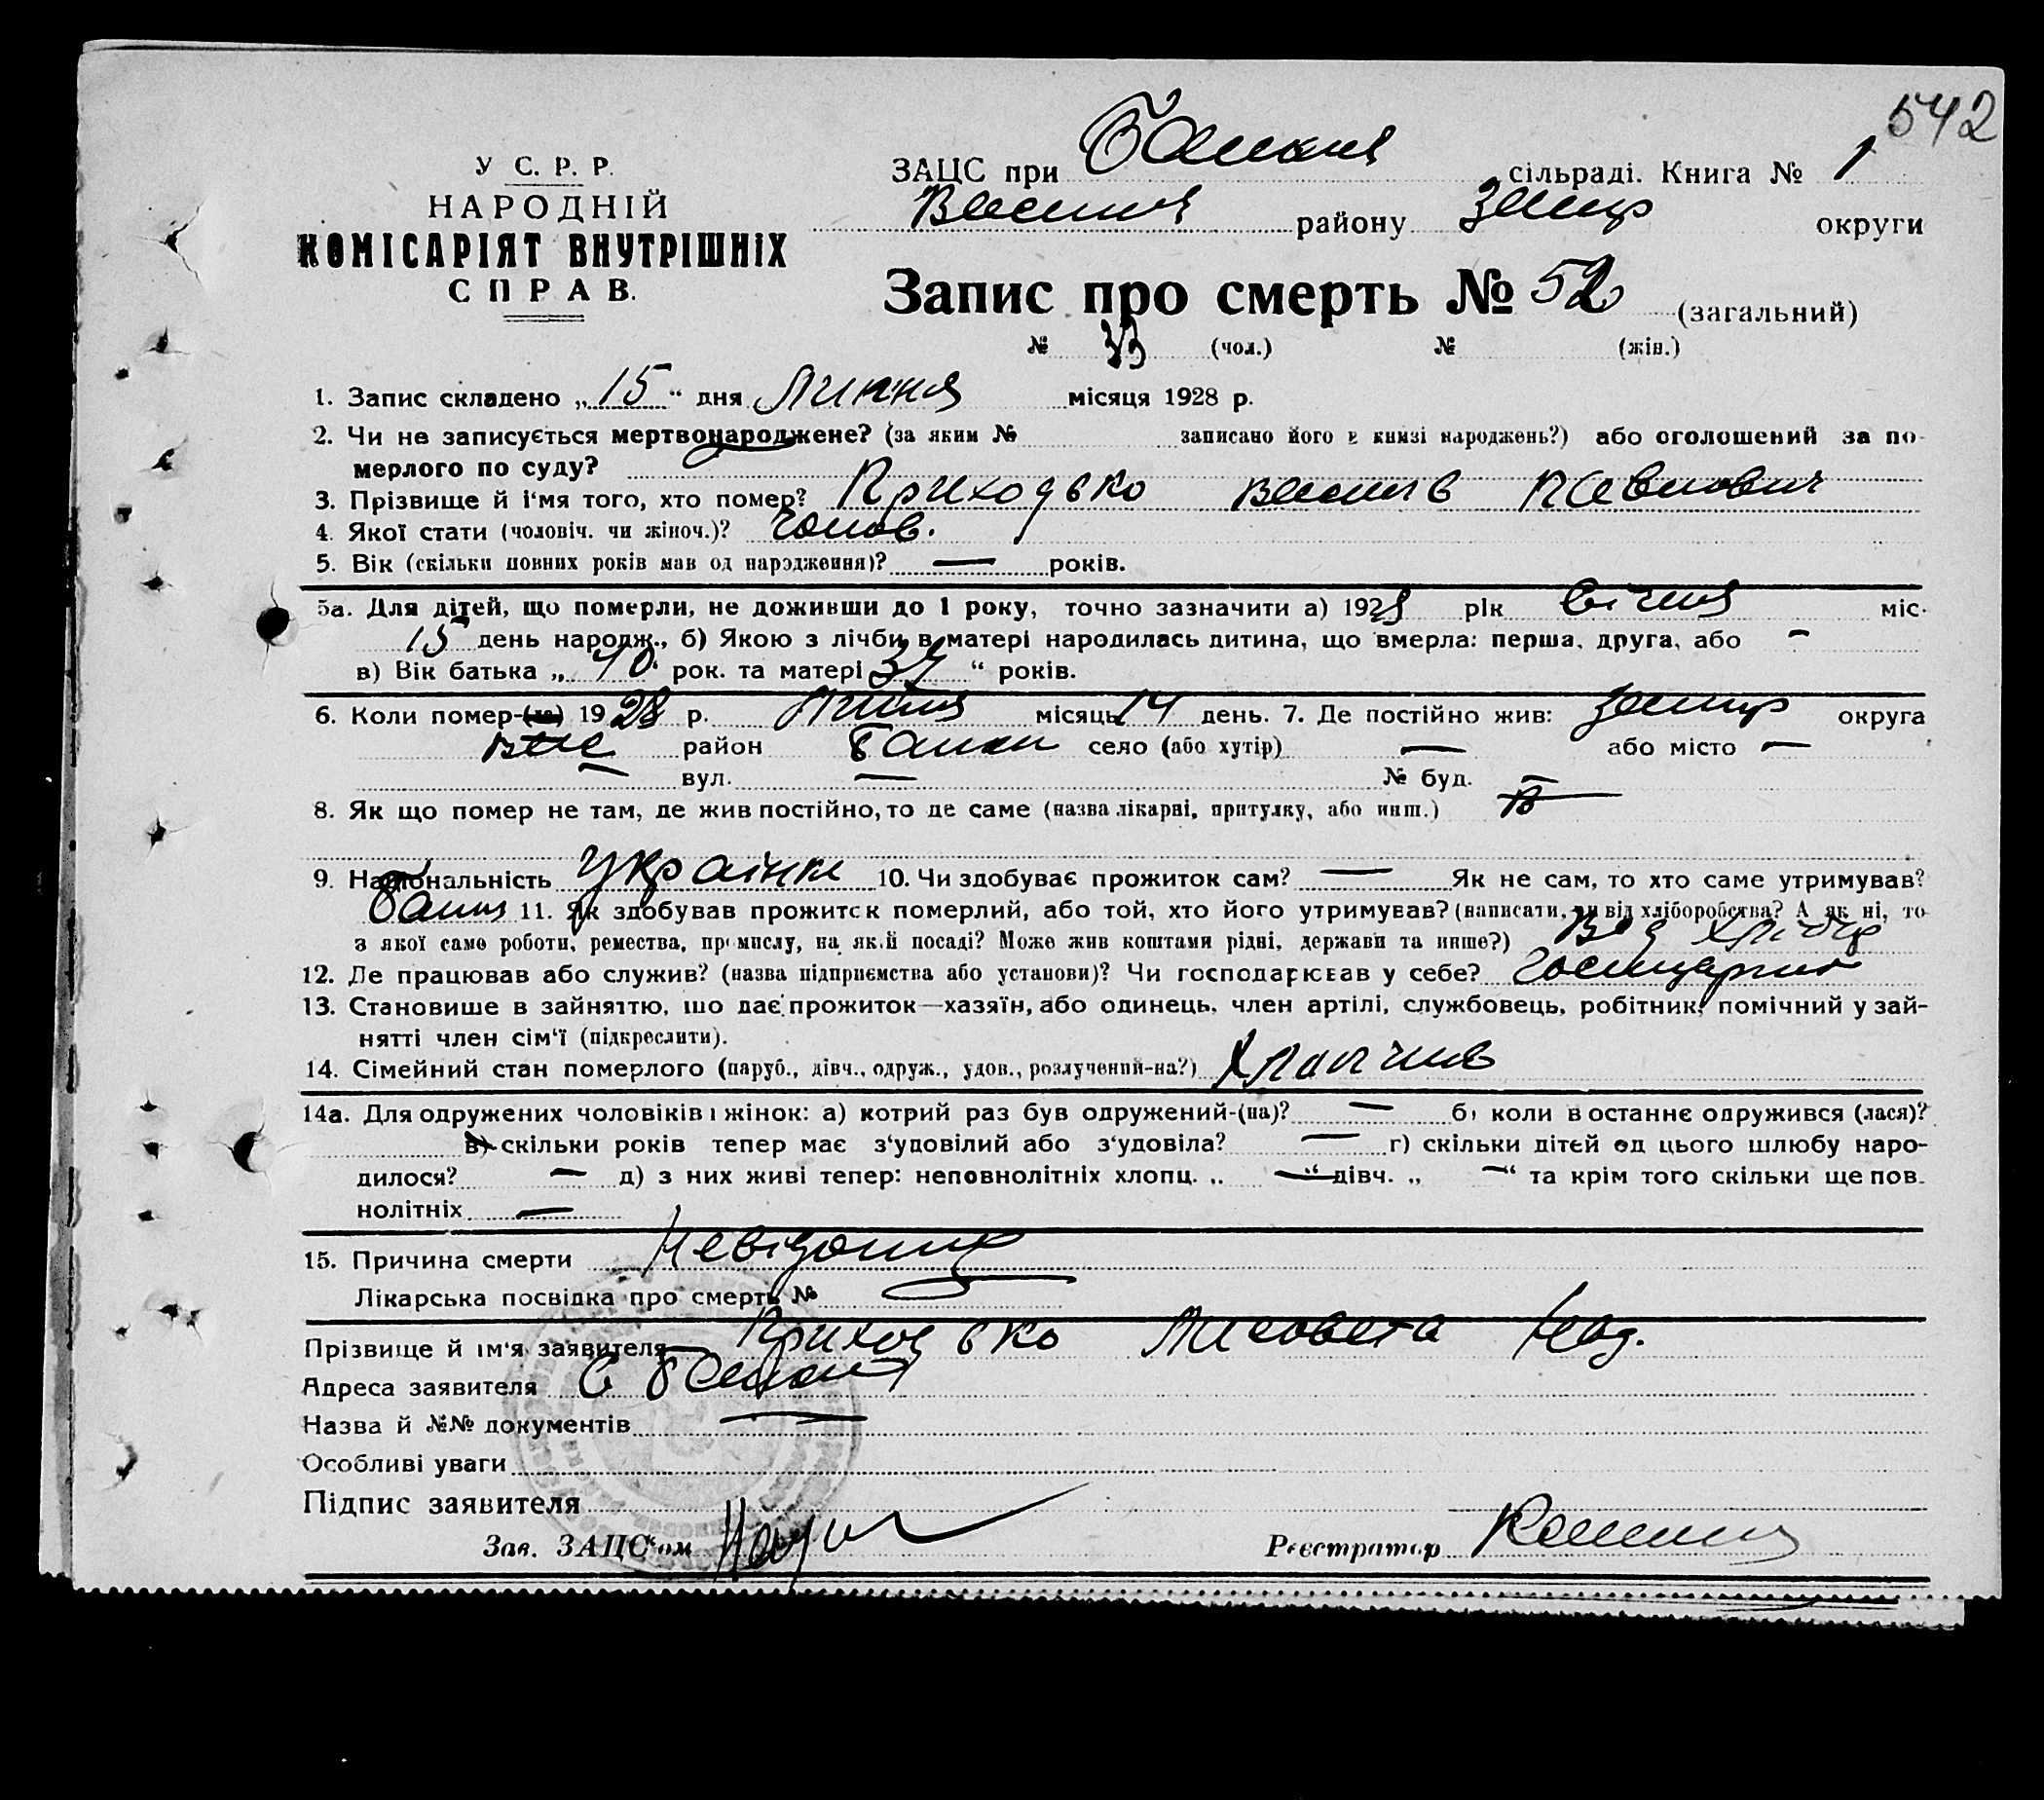 542
У С. Р. Р.
НАРОДНІЙ
КОМІСАРІЯТ ВНУТРІШНІХ
СПРАВ.
ЗАЦС при сільраді. Книга № 1
району округи
Запис про смерть № 52 (загальний)
№ 33 (чол.) № (жін.)
1. Запис складено „ 15 “ дня Липня місяця 1928 р.
2. Чи не записується мертвонароджене? (за яким № записано його в книзі народжень?) або оголошений за по-
мерлого по суду?
3. Прізвище й і‘мя того, хто помер? Приходько Василь Павлович
4. Якої стати (чоловіч. чи жіноч.)? Чолов.
5. Вік (скільки повних років мав од народження)? — років.
5а. Для дітей, що померли, не доживши до 1 року, точно зазначити а) 1928 рік Січня міс.
15 день народж., б) Якою з лічби в матері народилась дитина, що вмерла: перша, друга, або –
в) Вік батька „ 40 рок. та матері 34 “ років.
6. Коли помер-(ла) 1928 р. Липня місяць 14 день. 7. Де постійно жив: округа
Вас район село (або хутір) — або місто —
— вул. — № буд. —
8. Як що помер не там, де жив постійно, то де саме (назва лікарні, притулку, або инш.)
9. Національність Українц 10. Чи здобуває прожиток сам? — Як не сам, то хто саме утримував?
11. Як здобував прожиток померлий, або той, хто його утримував? (написати, чи від хліборобства? А як ні, то
з якої саме роботи, ремества, промислу, на якій посаді? Може жив коштами рідні, держави та инше?) Від хлібор
12. Де працював або служив? (назва підприємства або установи)? Чи господарював у себе?
13. Становище в зайняттю, що дає прожиток—хазяїн, або одинець, член артілі, службовець, робітник, помічний у зай-
нятті член сім‘ї (підкреслити).
14. Сімейний стан померлого (паруб., дівч., одруж., удов., розлучений-на?) Хлопчик
14а. Для одружених чоловіків і жінок: а) котрий раз був одружений-(на)? — б) коли в останнє одружився (лася)?
в) скільки років тепер має з‘удовілий або з‘удовіла? — г) скільки дітей од цього шлюбу наро-
дилося? — д) з них живі тепер: неповнолітніх хлопц. „ — “ дівч. „ — “ та крім того скільки ще пов-
нолітніх —
15. Причина смерти Невідома
Лікарська посвідка про смерть № —
Прізвище й ім‘я заявителя Приходько Лисовета
Адреса заявителя С
Назва й №№ документів —
Особливі уваги
Підпис заявителя
Зав. ЗАЦС‘ом Реєстратор